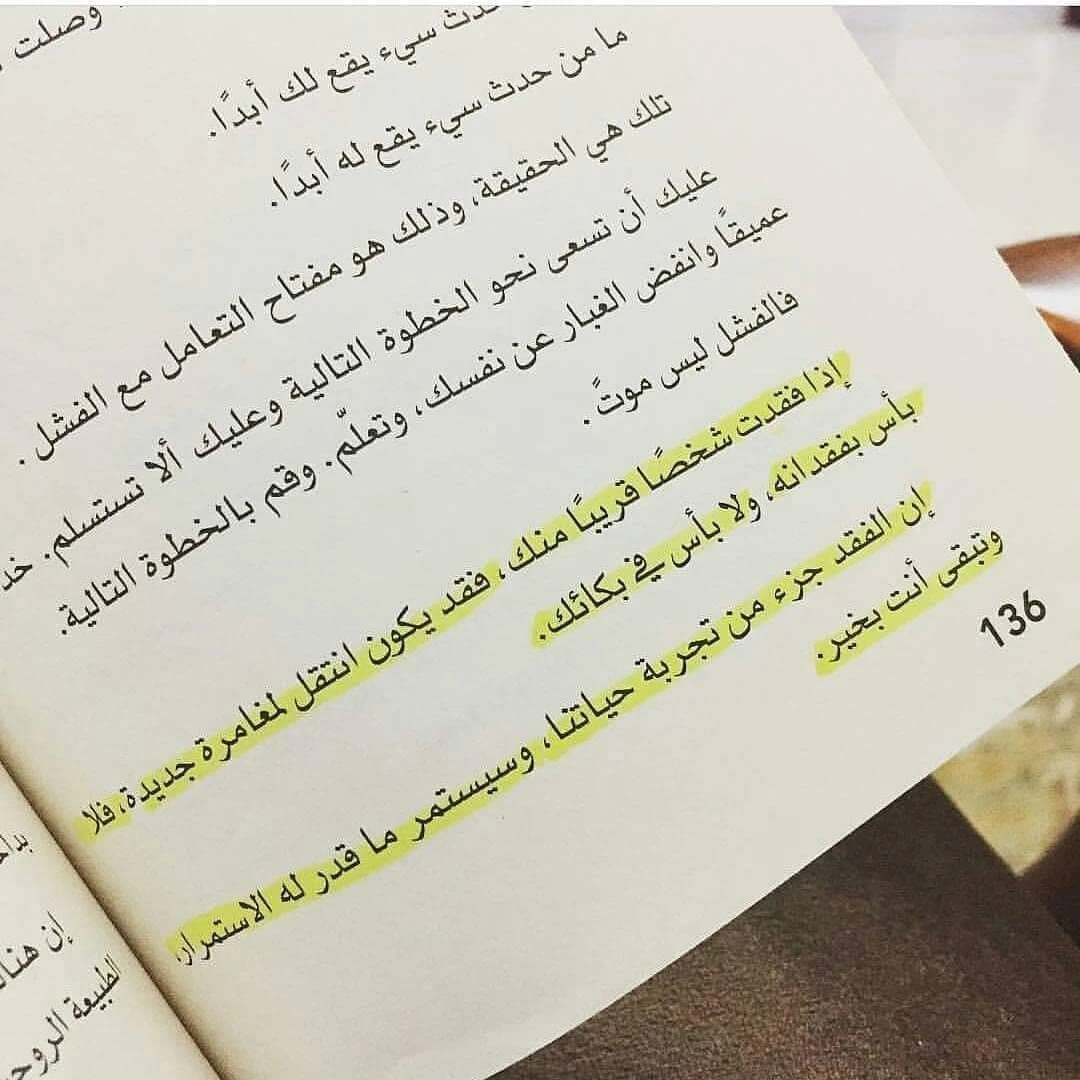 وصلت
حدث سيء يقع لك أبدًا.
ما من حدث سيء يقع له أبدًا.
تلك هي الحقيقة، وذلك هو مفتاح التعامل مع الفشل.
عليك أن تسعى نحو الخطوة التالية وعليك ألا تستسلم. خذ
عميقًا وانفض الغبار عن نفسك، وتعلّم. وقم بالخطوة التالية.
فالفشل ليس موتً.
إذا فقدت شخصًا قريبًا منك، فقد يكون انتقل لمغامرة جديدة، فلا
بأس بفقدانه، ولا بأس في بكائك.
إن الفقد جزء من تجربة حياتنا، وسيستمر ما قدر له الاستمرار،
وتبقى أنت بخير.
136
إن
الطبيعة